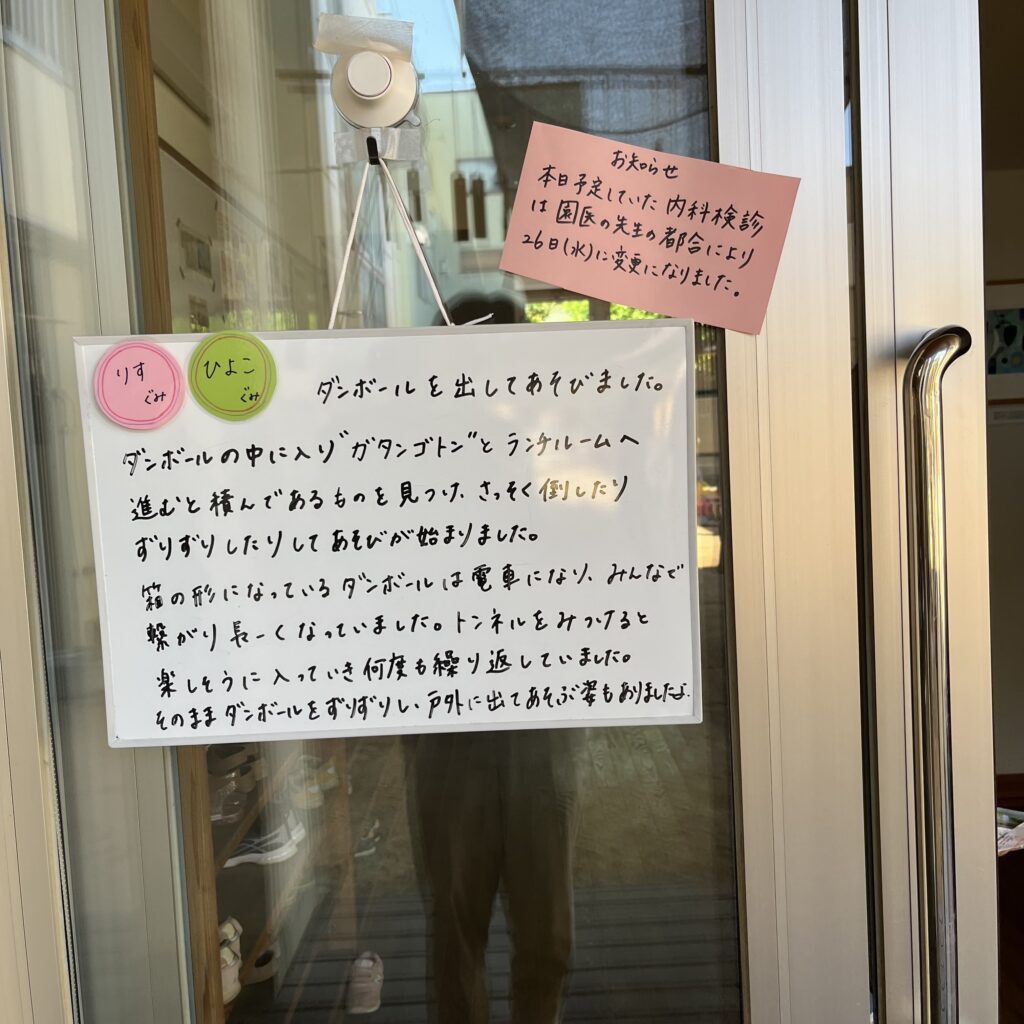 お知らせ
本日予定していた内科検診
は園医の先生の都合により
26日(水)に変更になりました。
りす
ぐみ
ひよこ
ぐみ
ダンボールを出してあそびました。
ダンボールの中に入り"ガタンゴトン"とランチルームへ
進むと積んであるものを見つけ、さっそく倒したり
ずりずりしたりしてあそびが始まりました。
箱の形になっているダンボールは電車になり、みんなで
繋がり長ーくなっていました。トンネルをみつけると
楽しそうに入っていき何度も繰り返していました。
そのままダンボールをずりずりし、戸外に出てあそぶ姿もありましたよ。